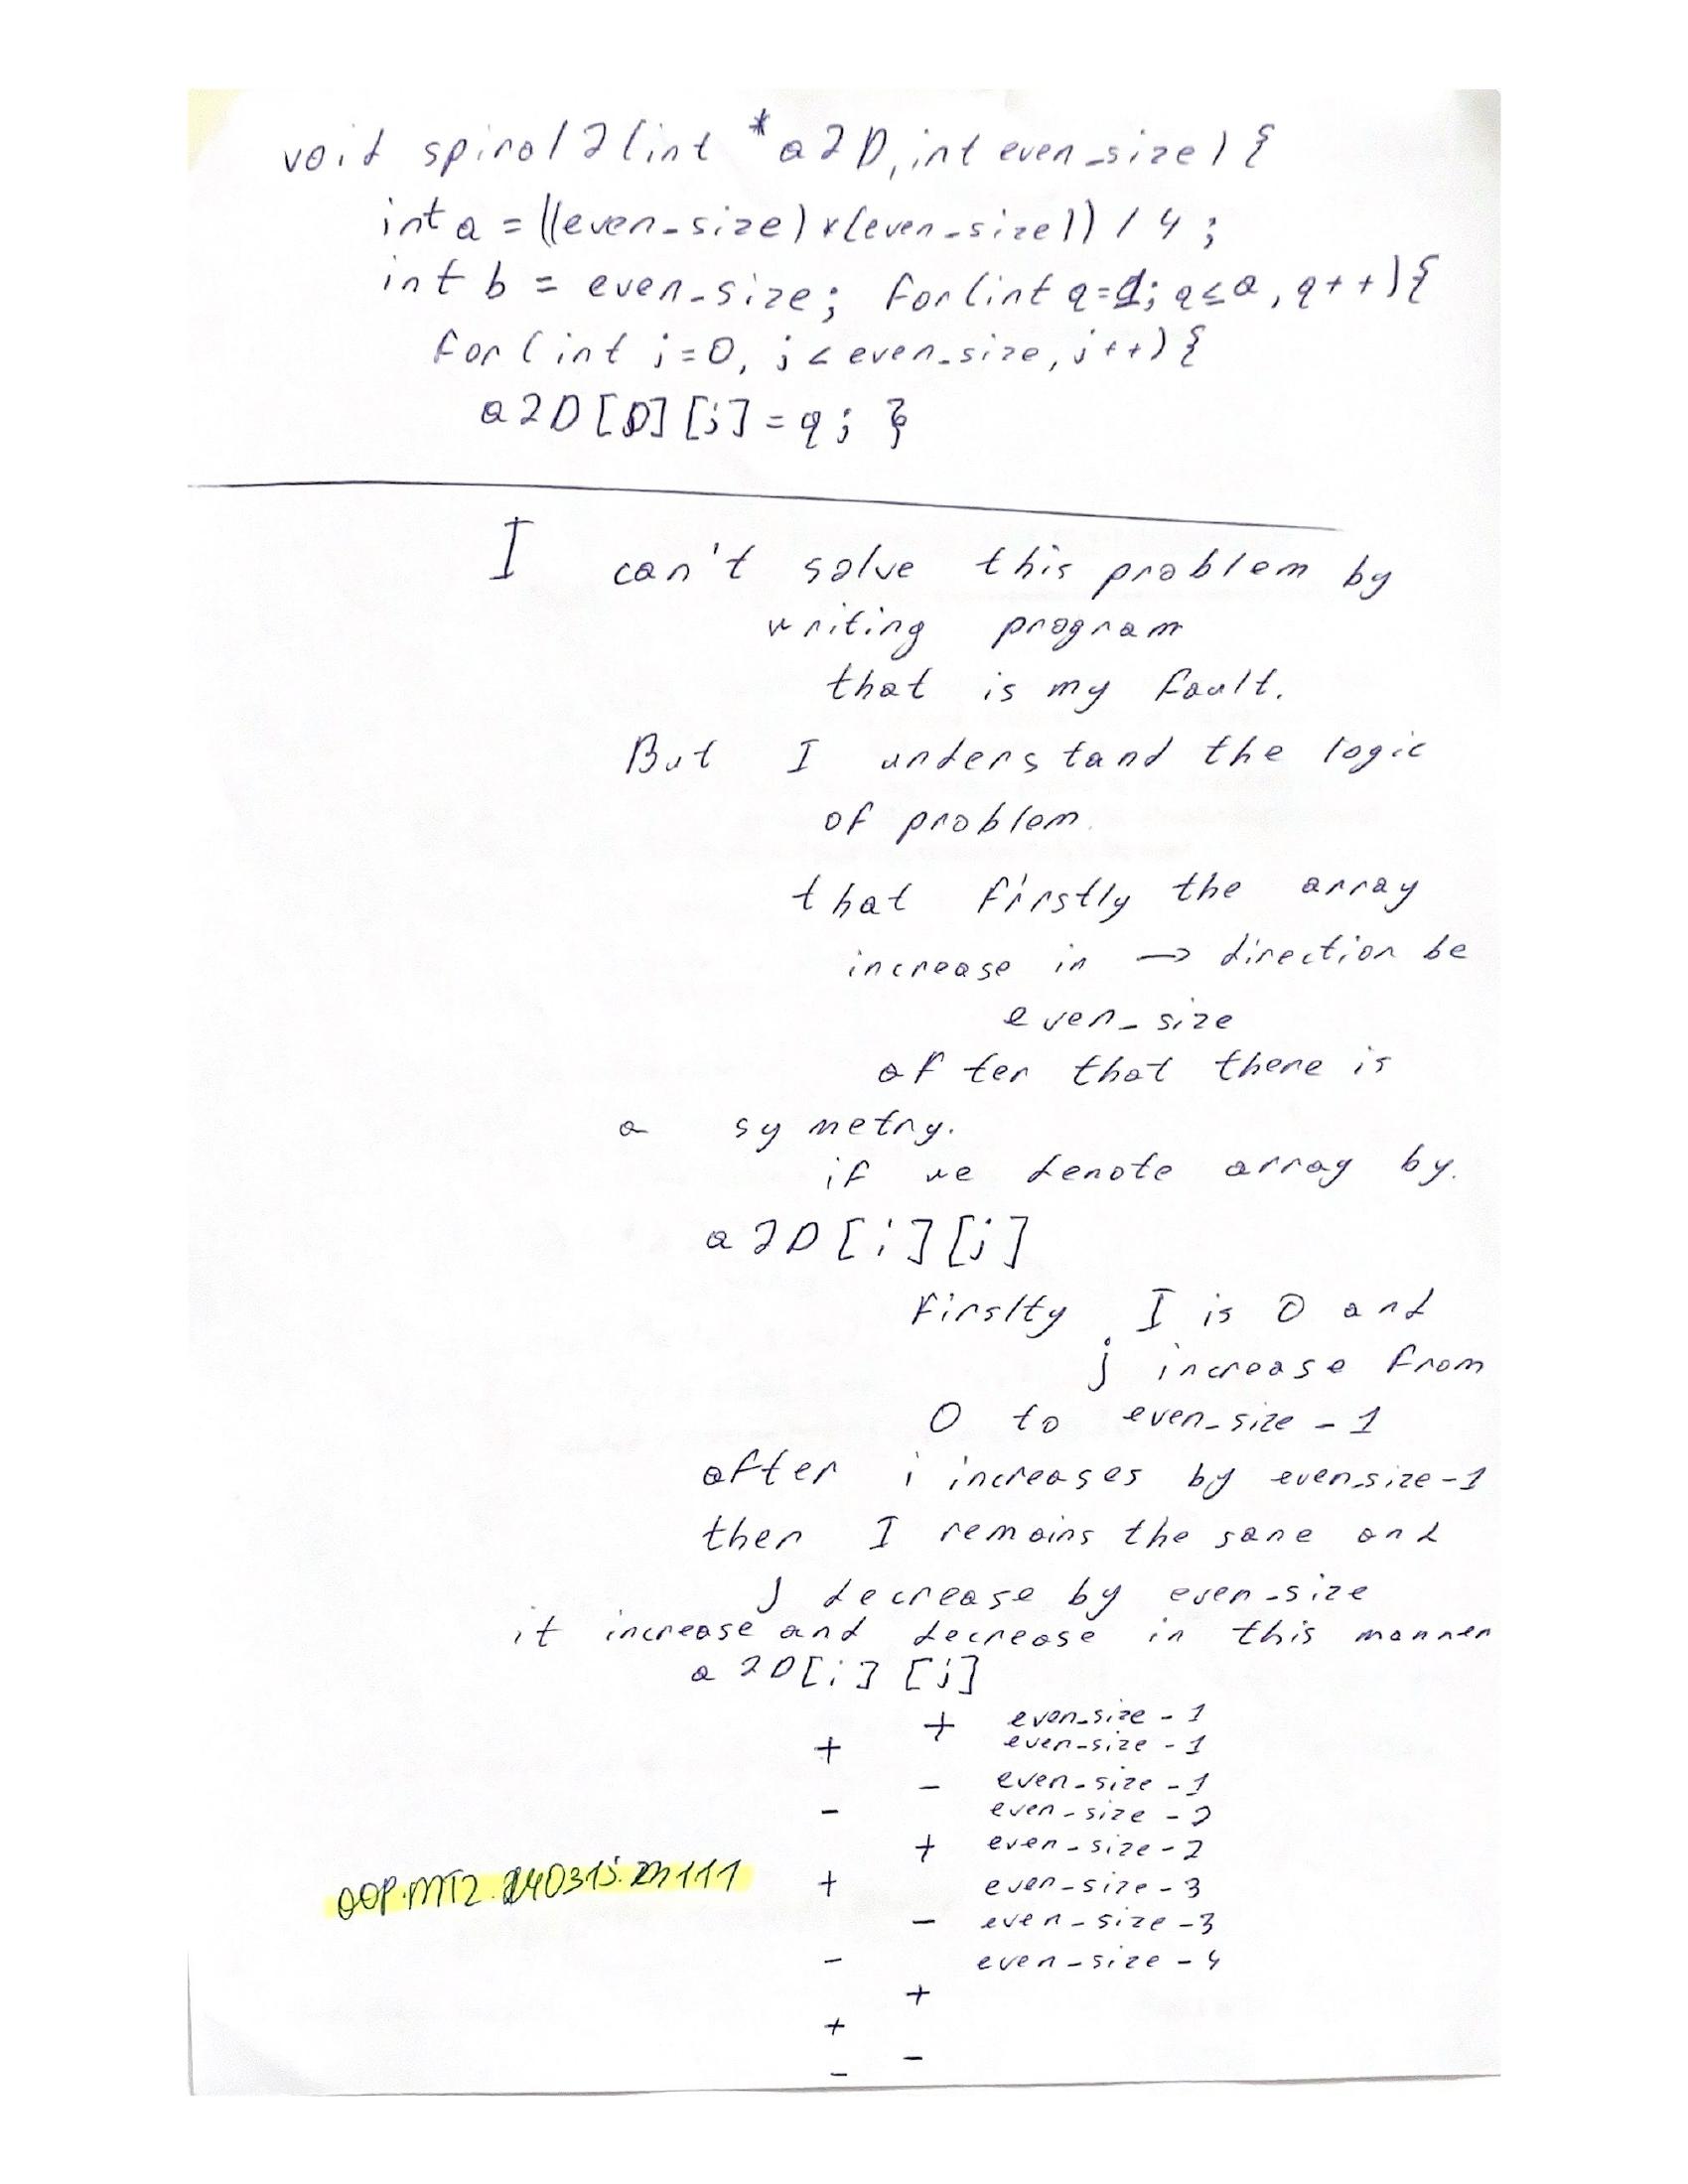 void spiral2(int *a2D, int even_size) {
int a = ((even_size) * (even_size)) / 4 ;
int b = even_size; for(int q=1; q≤a, q++){
for(int j=0, j < even_size, j++){
a2D[0][j] = q; }
I can't solve this problem by
writing program
that is my fault.
But I understand the logic
of problem.
that firstly the array
increase in → direction be
even_size
after that there is
a symetry.
if we denote array by.
a2D[i][j]
Firslty I is 0 and
j increase from
0 to even_size - 1
after i increases by even_size-1
then I remains the same and
J decrease by even_size
it increase and decrease in this manner
a2D[i][j]
+ even_size - 1
+ even_size - 1
- even_size - 1
- even_size - 2
+ even_size - 2
+ even_size - 3
- even_size - 3
- even_size - 4
+
+
-
-